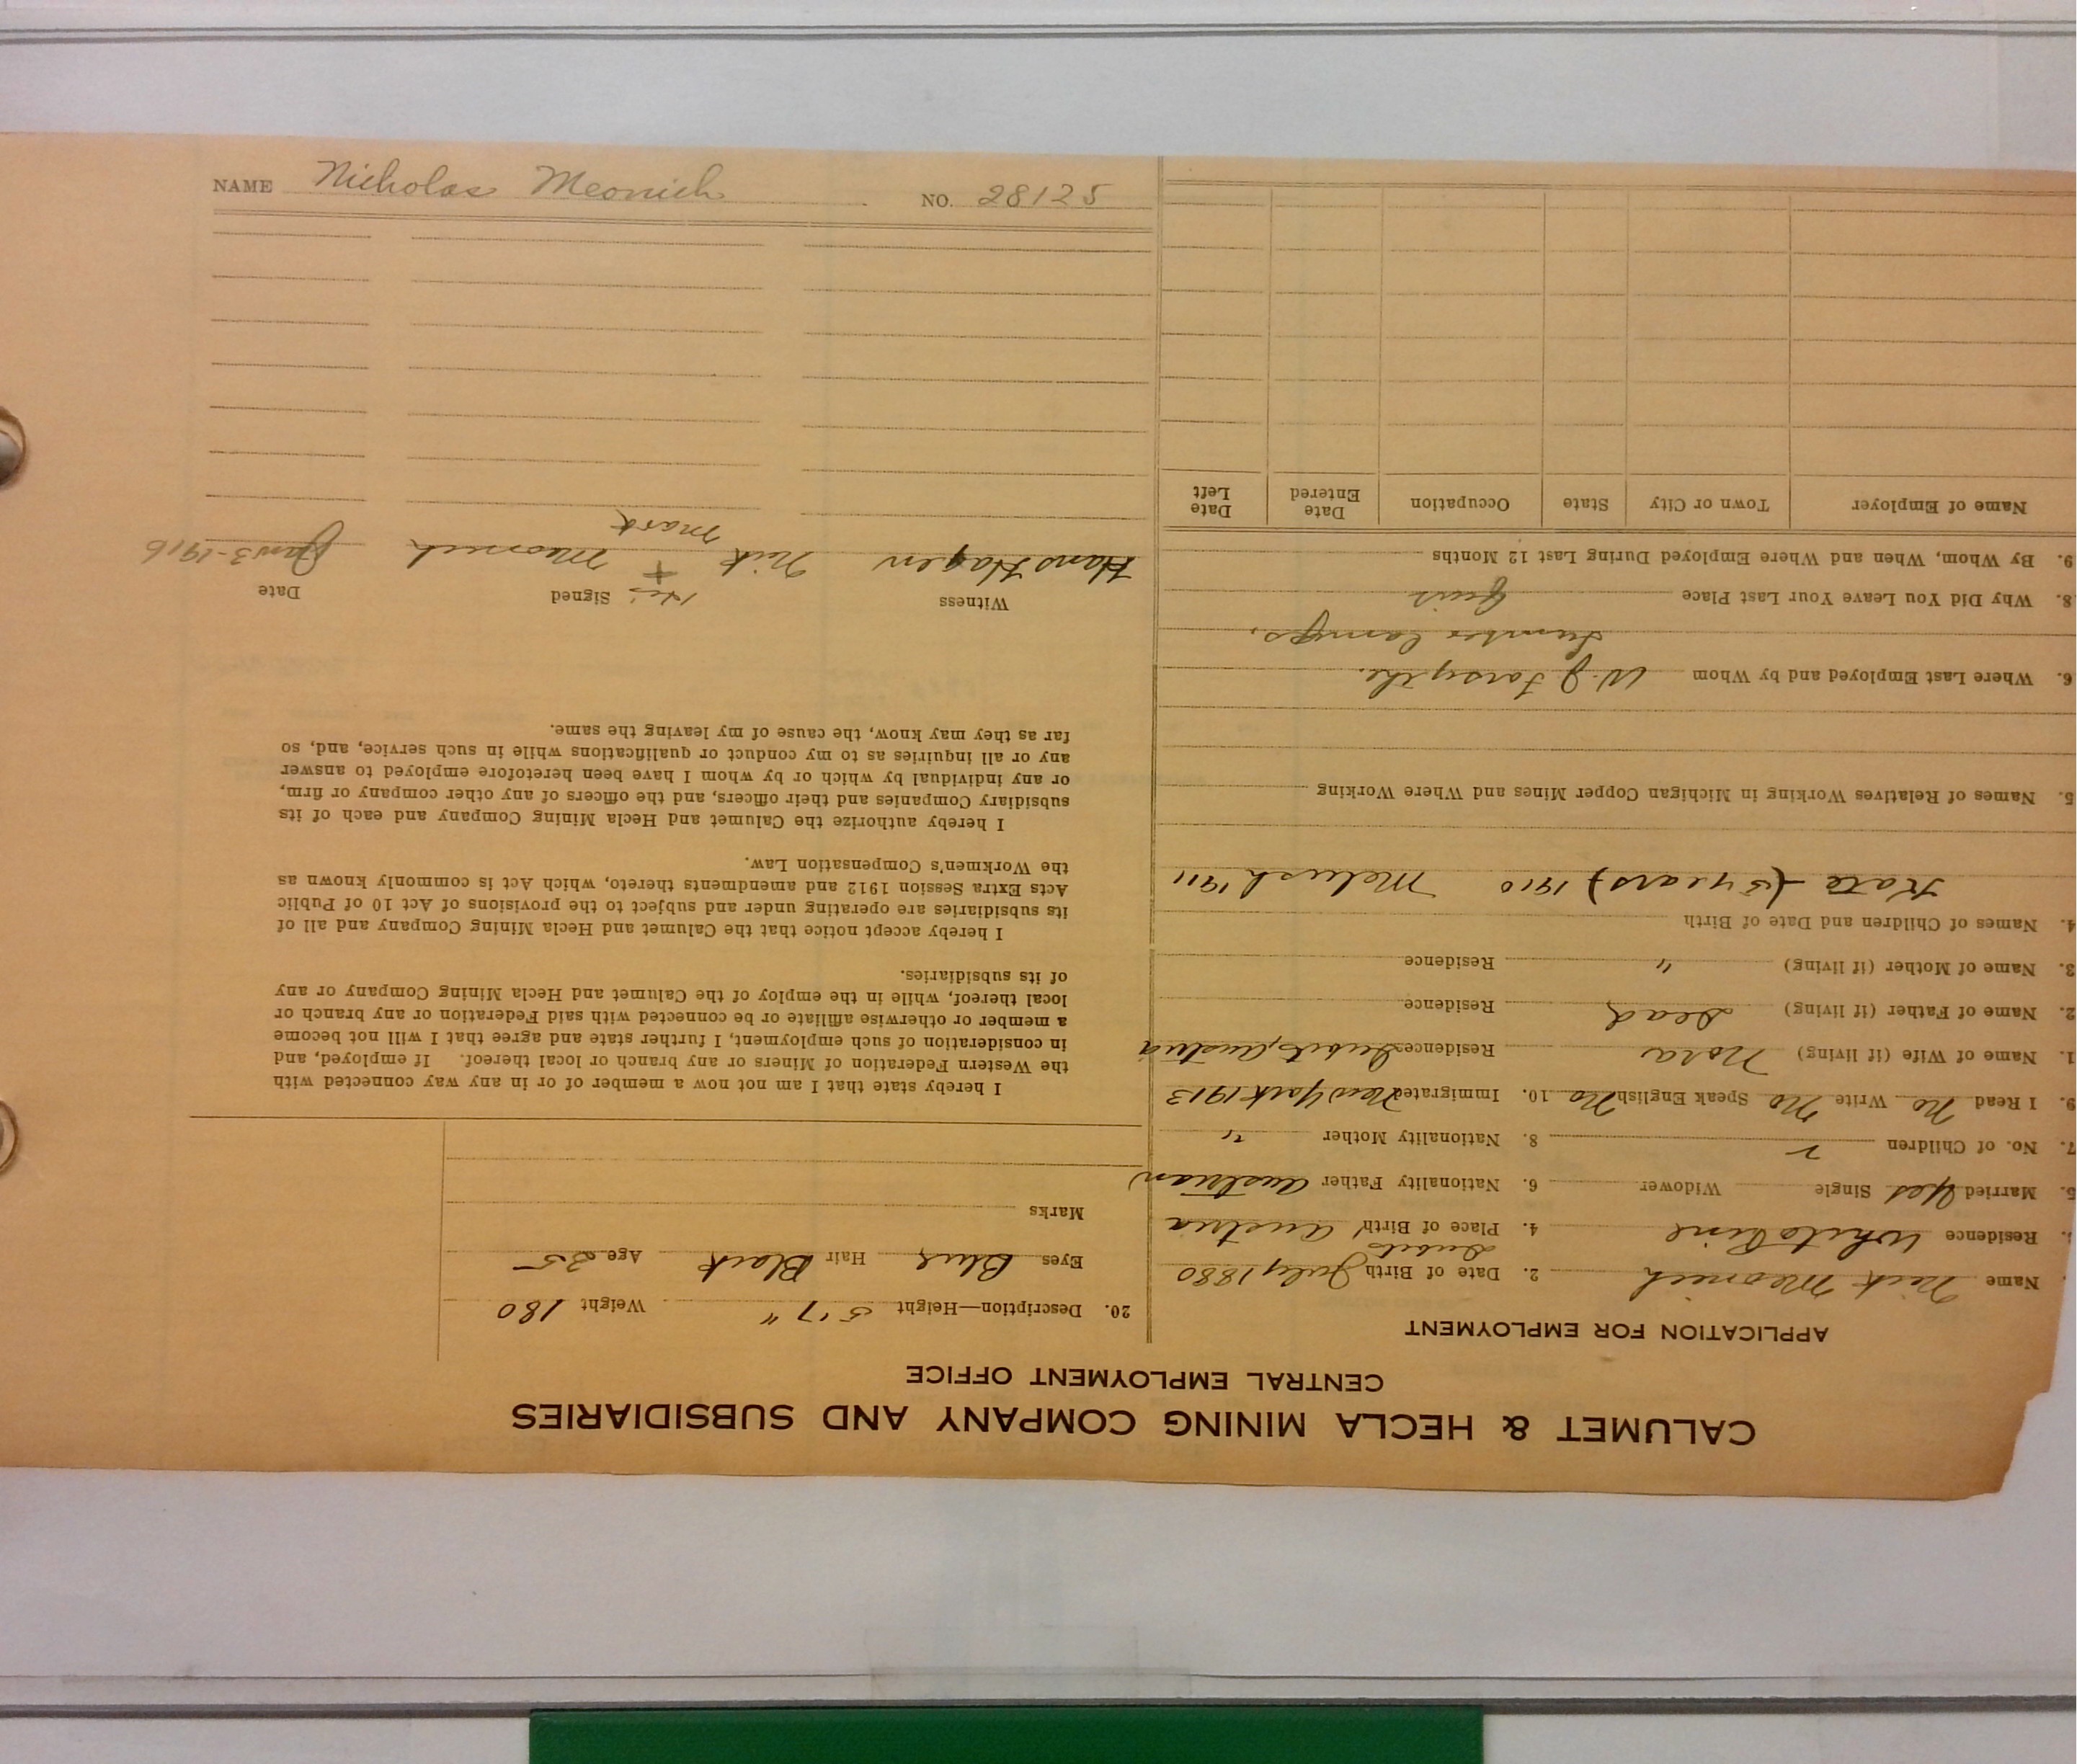 NAME Nicholas Meonich NO. 28125
CALUMET & HECLA MINING COMPANY AND SUBSIDIARIES
CENTRAL EMPLOYMENT OFFICE
APPLICATION FOR EMPLOYMENT
Name Nick Meonich 2. Date of Birth July 1880
Residence White Pine 4. Place of Birth Austria
5. Married Yes Single Widower 6. Nationality Father Austrian
7. No. of Children 2 8. Nationality Mother "
9. I Read No Write No Speak English No 10. Immigrated New York 1913
1. Name of Wife (if living) Nora Residence Austria
2. Name of Father (if living) Dead Residence
3. Name of Mother (if living) " Residence
4. Names of Children and Date of Birth
Kate (5 years) 1910 1911
5. Names of Relatives Working in Michigan Copper Mines and Where Working
6. Where Last Employed and by Whom W. J. Forsythe.
Lumber Camps.
8. Why Did You Leave Your Last Place Quit
9. By Whom, When and Where Employed During Last 12 Months
Name of Employer Town or City State Occupation Date Entered Date Left
20. Description—Height 5'7" Weight 180
Eyes Blue Hair Black Age 35
Marks
I hereby state that I am not now a member of or in any way connected with
the Western Federation of Miners or any branch or local thereof. If employed, and
in consideration of such employment, I further state and agree that I will not become
a member or otherwise affiliate or be connected with said Federation or any branch or
local thereof, while in the employ of the Calumet and Hecla Mining Company or any
of its subsidiaries.
I hereby accept notice that the Calumet and Hecla Mining Company and all of
its subsidiaries are operating under and subject to the provisions of Act 10 of Public
Acts Extra Session 1912 and amendments thereto, which Act is commonly known as
the Workmen's Compensation Law.
I hereby authorize the Calumet and Hecla Mining Company and each of its
subsidiary Companies and their officers, and the officers of any other company or firm,
or any individual by which or by whom I have been heretofore employed to answer
any or all inquiries as to my conduct or qualifications while in such service, and, so
far as they may know, the cause of my leaving the same.
Witness Signed Date
His
Hans Hagen Nick + Meonich Jan 3-1916
mark